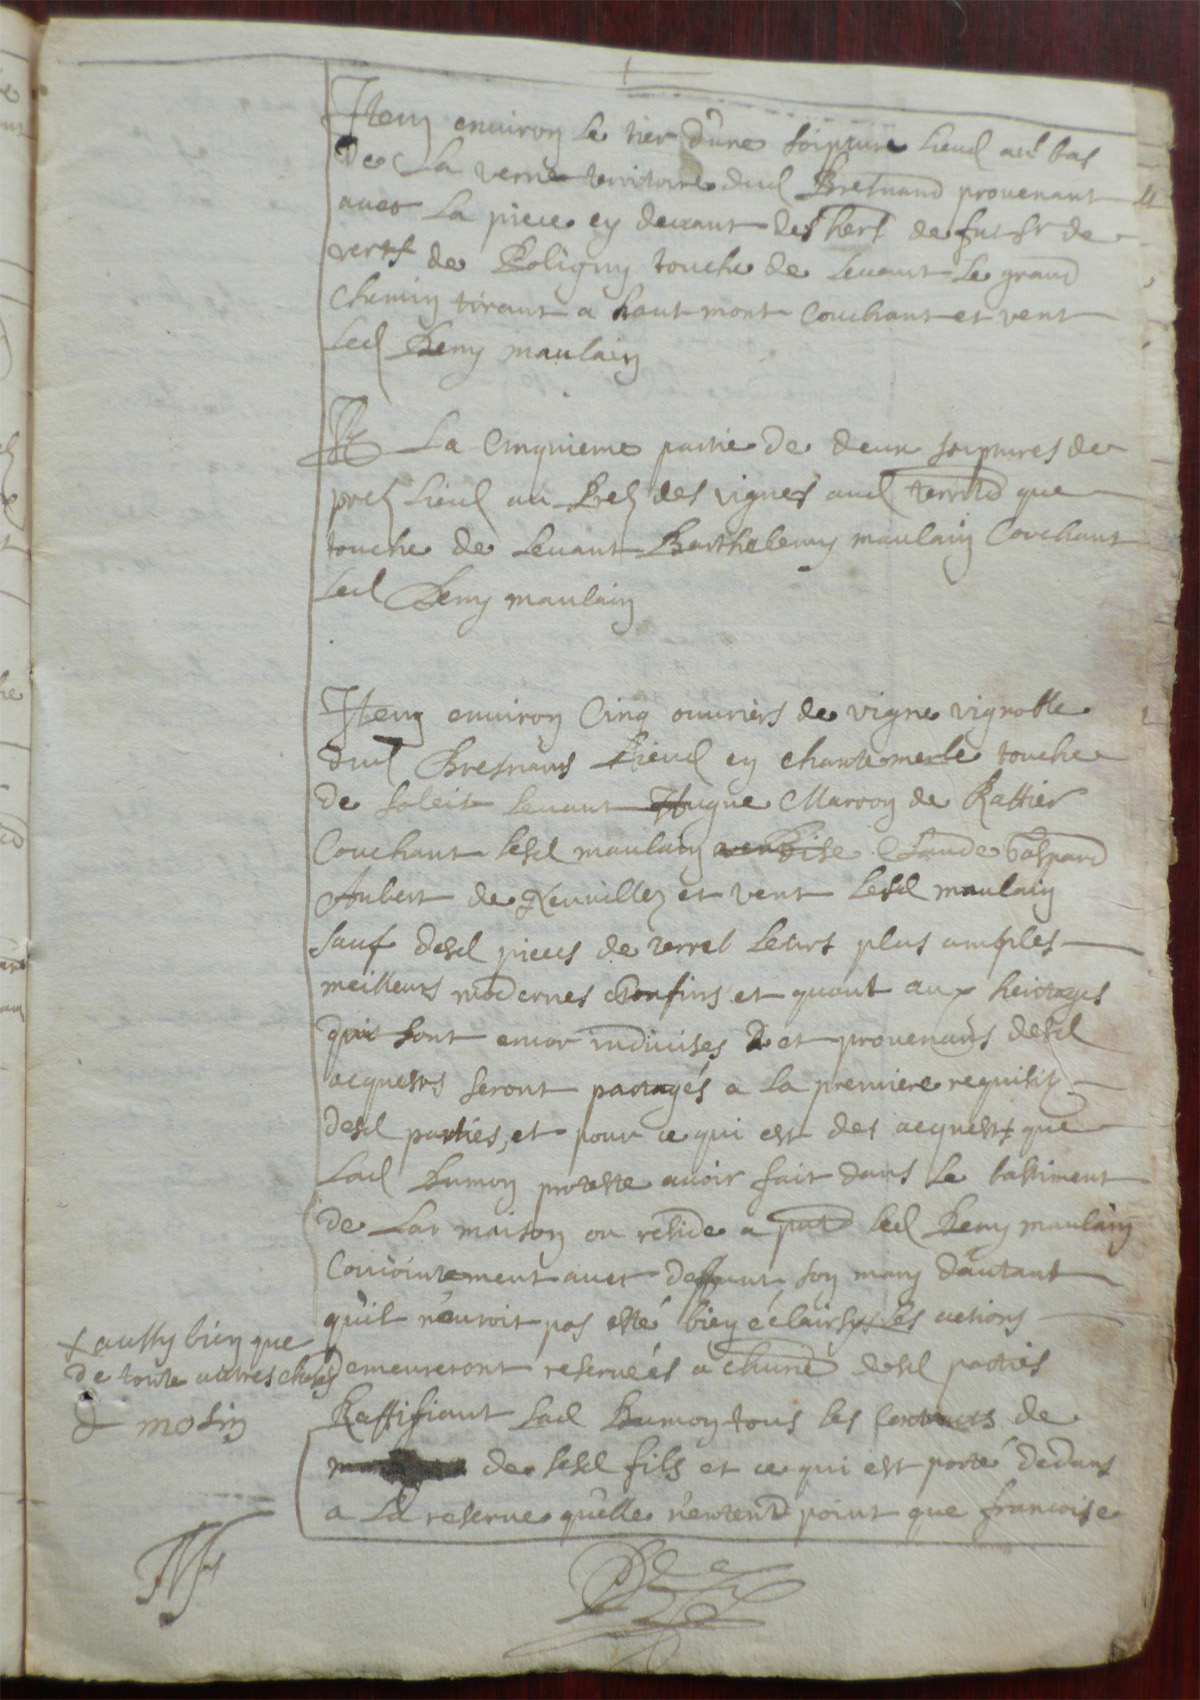 Item environ le tier dune soipture lieud au bas
de La verne territoire dud Bresnand provenant
avec La piece cy devant des hers de fut Sr de
vers de Poligny touche de levant le grand
Chemin tirant a haut mont Couchant et vent
led Remy maulain
It La Cinquieme partie de deux soiptures de
prel lieud au Prel des vignes aud territ que
touche de levant Barthelemy maulain Couchant
led Remy maulain
Item environ Cinq ouvriers de vigne vignoble
dud Bresnans lieud en chantemerle touche
de soleit levant Hugue Marvon de Rattier
Couchant lesd maulain bise Claude Gaspard
Aubert de Neuvilley et vent lesd maulain
sauf desd pieces de terres leurs plus amples
meilleurs modernes Confins et quant aux heritages
qui sont encor indivises et provenans desd
acquests seront partagés a la premiere requisit
desd parties, et pour ce qui est des acquest que
Lad Humon proteste avoir fait dans le bastiment
de Lar maison ou reside a pnt led Remy maulain
Conjointement avec deffunt son mary dautant
quil n'auroit pas esté bien eclaircy les actions
+ aussy bien que
de toute autres choses
mosin
demeureront reservéés a chune desd parties
Rattifiant lad Humon tous les Contracts de
de sesd fils et ce qui est porté dedans
a la reserve quelle n'entend point que francoise